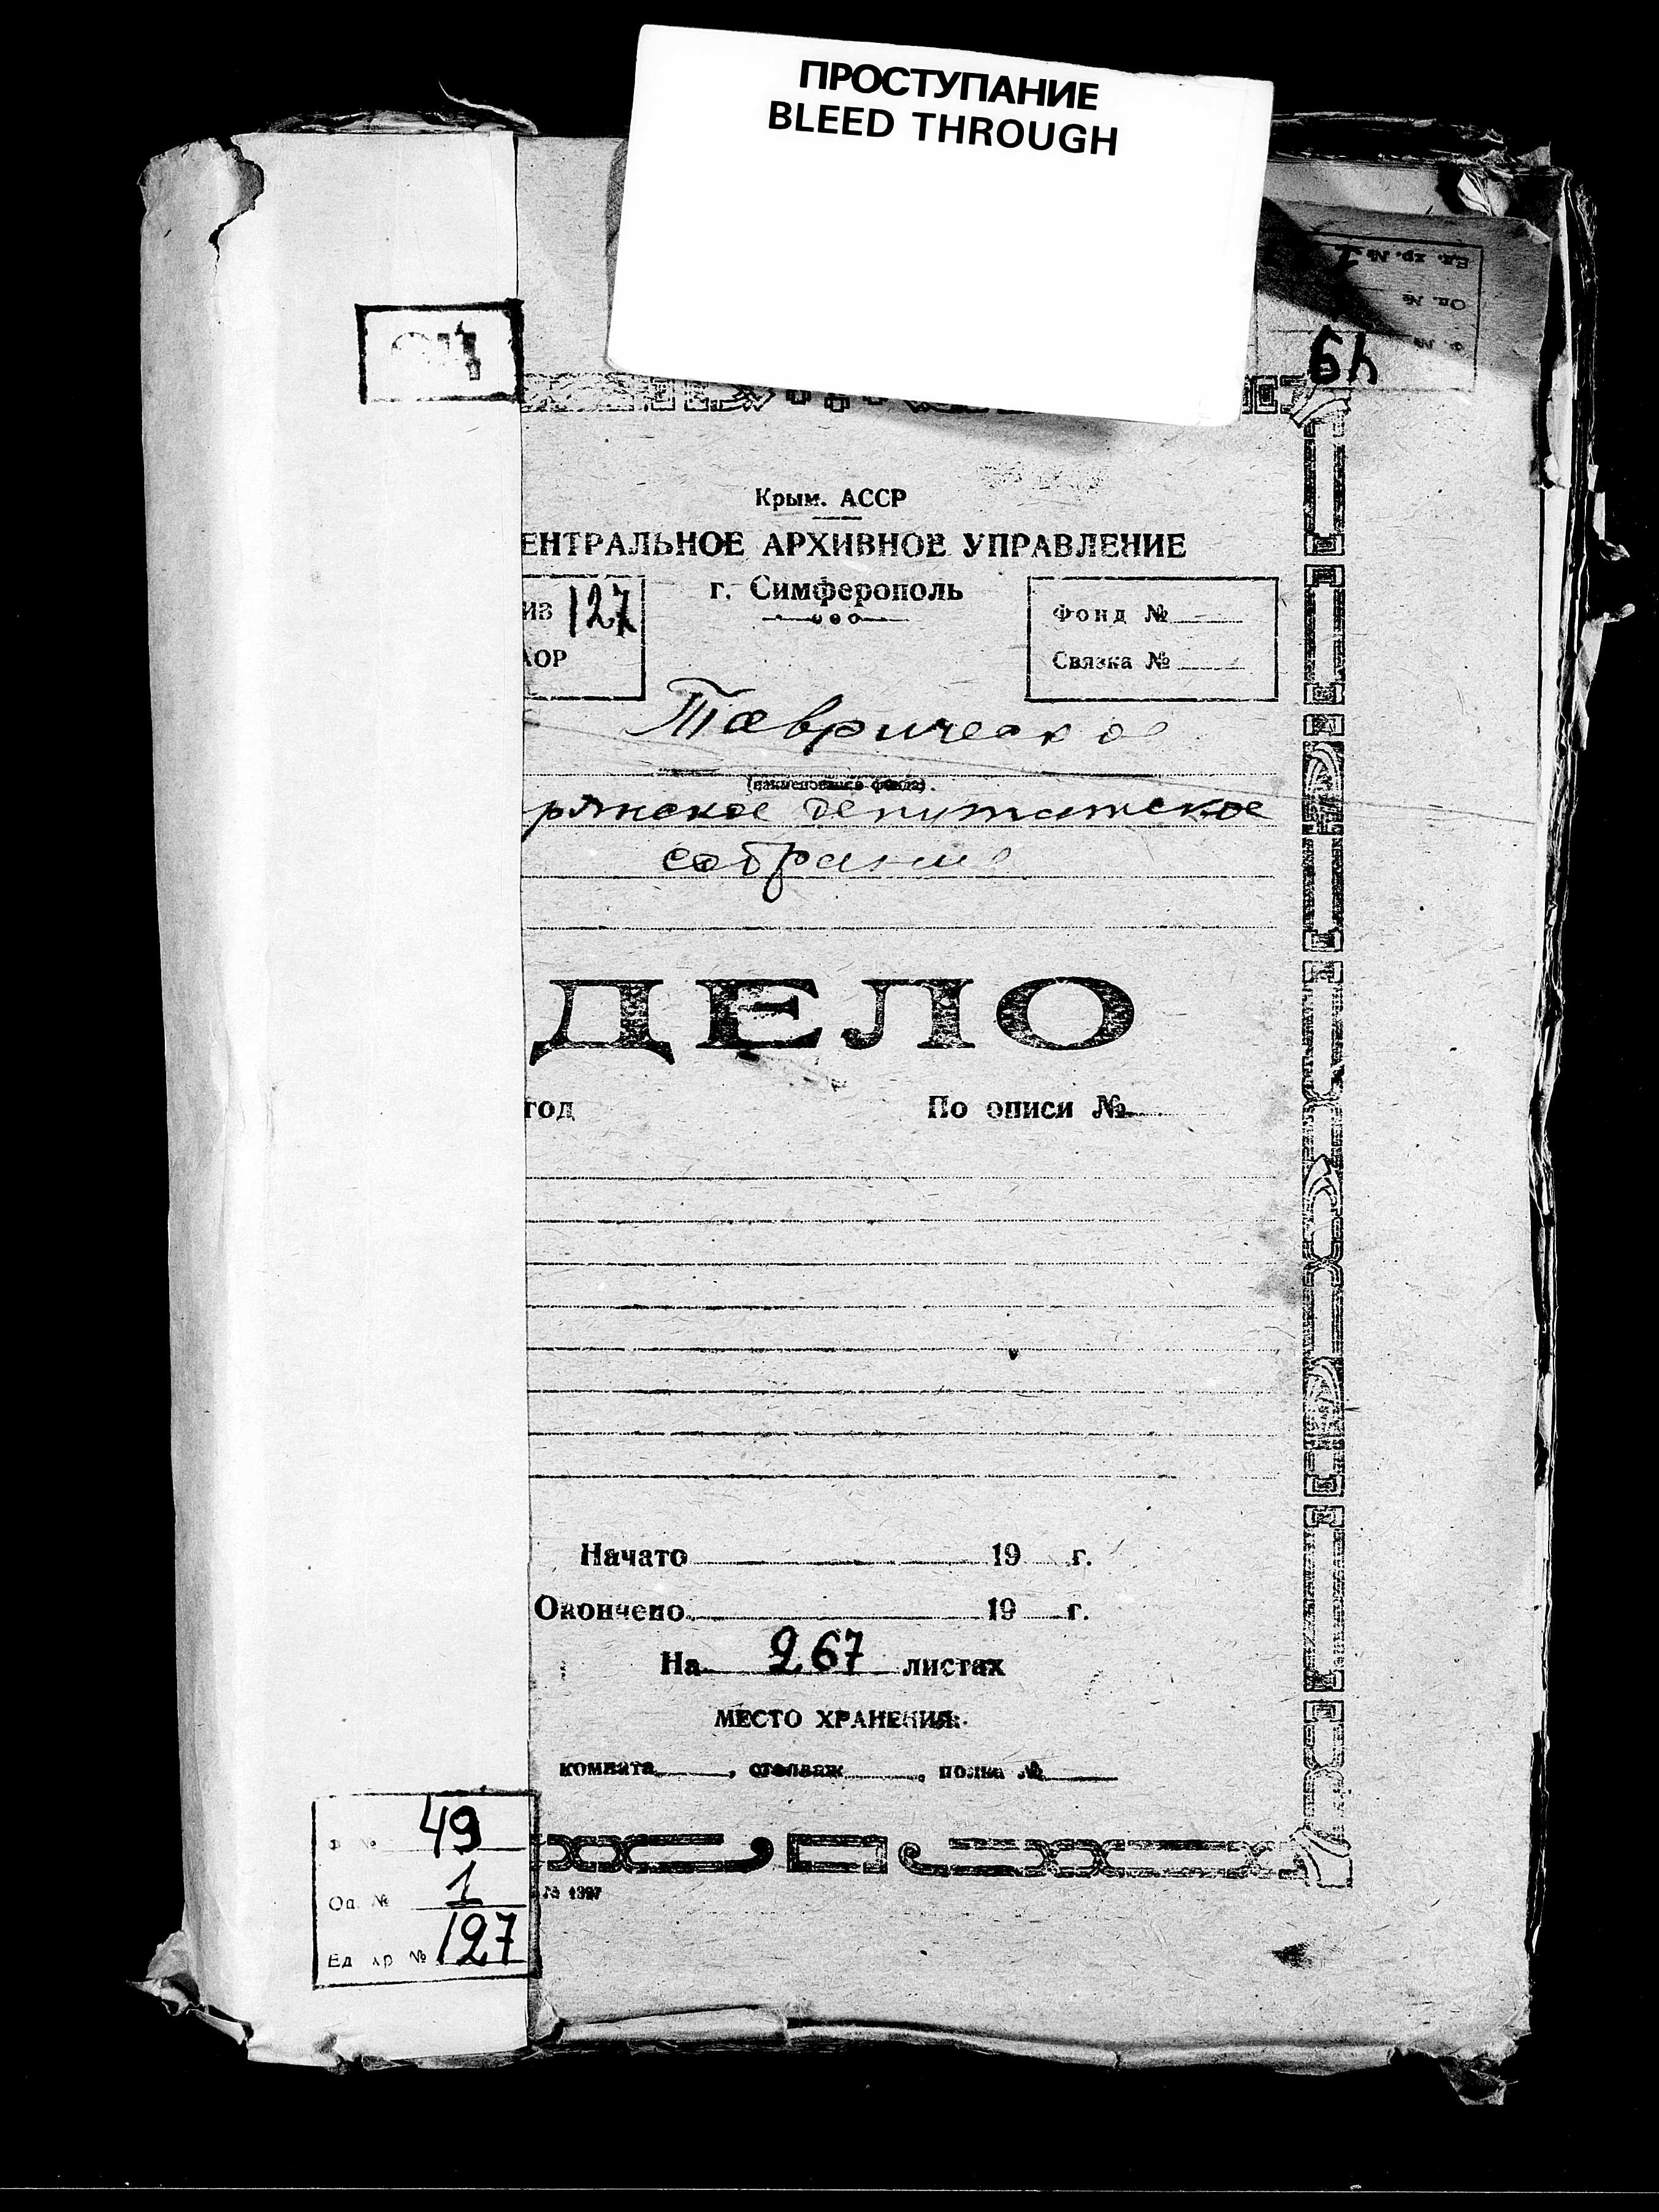 ПРОСТУПАНИЕ
BLEED THROUGH
Ед. хр. №
Оп. №
Ф. №
49
ОЦ
Крым. АССР
ЕНТРАЛЬНОЕ АРХИВНОЕ УПРАВЛЕНИЕ
г. Симферополь
ИВ 127
АОР
Фонд №
Связка №
Таврическое
(наименование фонда).
рянское депутатское
собрание
ДЕЛО
год
По описи №
Начато 19 г.
Окончено 19 г.
На 267 листах
МЕСТО ХРАНЕНИЯ:
комната , стеллаж , полка №
№ 1397
Ф № 49
Оп № 1
Ед хр № 127